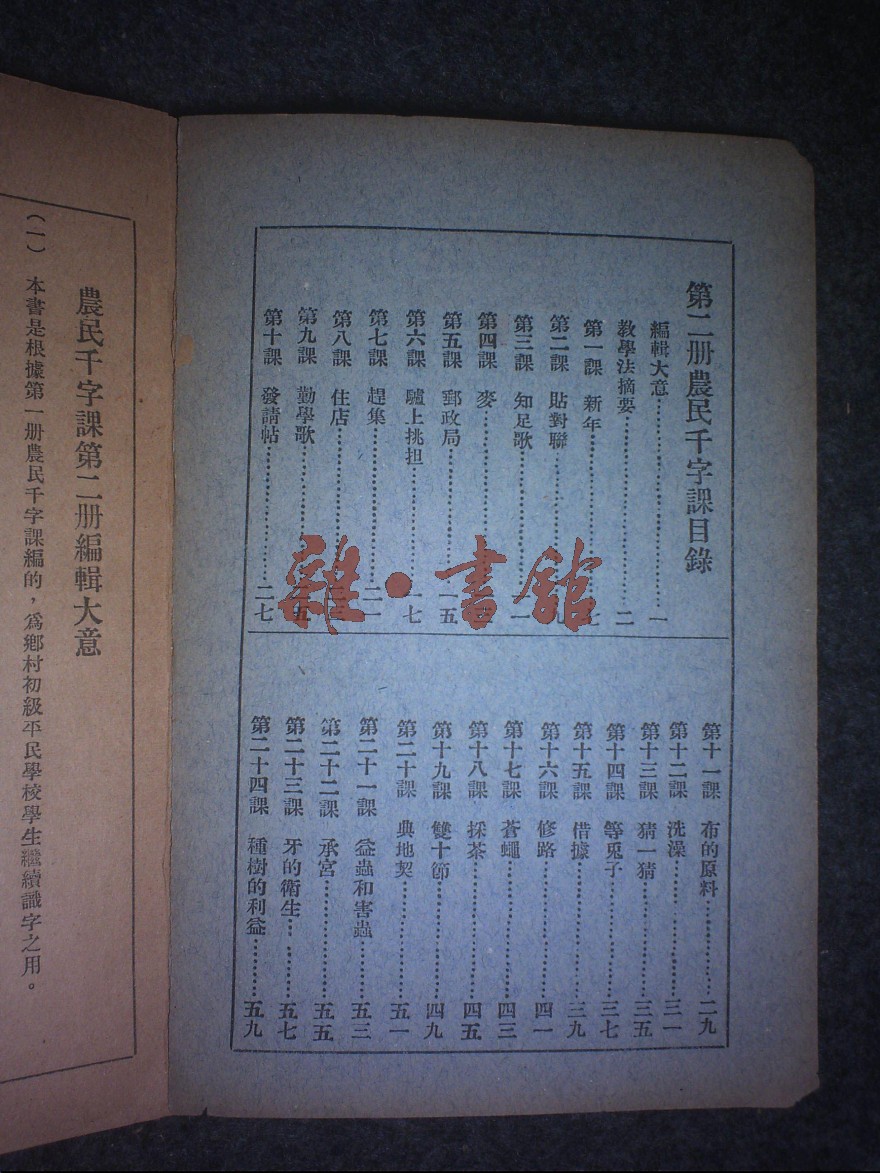 第二册農民千字課目錄
編輯大意…………一
教學法摘要…………二
第一課 新年…………
第二課 貼對聯…………九
第三課 知足歌…………一
第四課 麥…………
第五課 郵政局…………一五
第六課 驢上挑担…………一七
第七課 趕集…………二一
第八課 住店…………
第九課 勤學歌…………五
第十課 發請帖…………二七
第十一課 布的原料…………二九
第十二課 洗澡…………三一
第十三課 猜一猜…………三五
第十四課 等兎子…………三七
第十五課 借據…………三九
第十六課 修路…………四一
第十七課 蒼蠅…………四三
第十八課 採茶…………四五
第十九課 雙十節…………四九
第二十課 典地契…………五一
第二十一課 益蟲和害蟲…………五三
第二十二課 承宮…………五五
第二十三課 牙的衛生…………五七
第二十四課 種樹的利益…………五九
農民千字課第二册編輯大意
(一) 本書是根據第一册農民千字課編的，爲鄉村初級平民學校學生繼續識字之用。
雜·書館